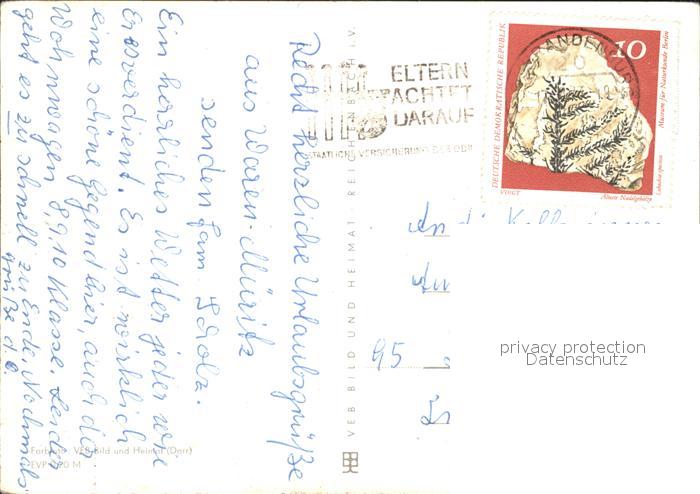 Recht herzliche Urlaubsgrüße
aus Waren-Müritz
senden Fam. Scholz.
Ein herrliches Wetter jeder wie
Ers verdient. Es ist wirklich
eine schöne Gegend hier, auch der
Wohnwagen 8, 9, 10 Klasse. Leider
geht es zu schnell zu Ende. Nochmals
Grüße d. O
Farbfoto: VEB Bild und Heimat (Darr)
EVP 0,20 M
VEB BILD UND HEIMAT REICHENBACH i.V.
ELTERN
ACHTET
DARAUF
STAATLICHE VERSICHERUNG DER DDR
BRANDENBURG
20
DEUTSCHE DEMOKRATISCHE REPUBLIK
10
Museum für Naturkunde Berlin
Lebachia speciosa
Ältere Nadelgehölze
VOIGT
An die
An
95
privacy protection
Datenschutz